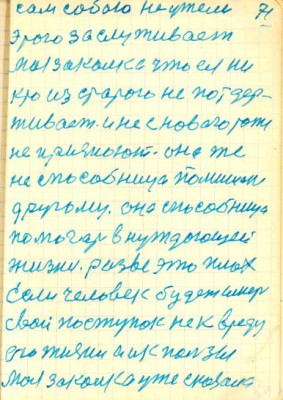 сам собою неужели 71
этого заслуживает
моя закалка что ея ни
кто из старого не поддер-
живает. и не с нового тоже
не принимают. она же
не способница
другому. она способница
помогат в нуждающей
жизни. разве это плох
если человек будет имет
свой поступок не к вреду
жизни а к ползи
моя закалка уже